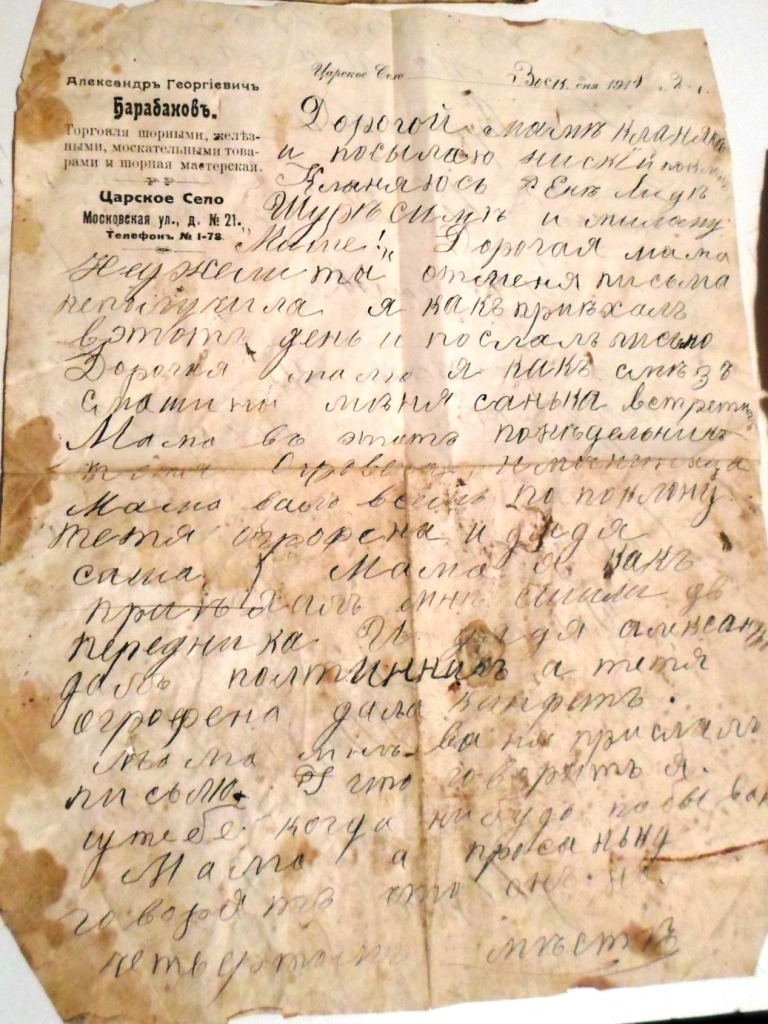 Александръ Георгіевичъ
Барабановъ.
Торговля шорными, желѣз-
ными, москательными това-
рами и шорная мастерская.
Царское Село
Московская ул., д. № 21.
Телефонъ № 1-78.
Царское Село Воск. дня 191
Дорогой мамѣ кланяюсь
и посылаю нискей поклонъ
Кланяюсь Енѣ Лидѣ
Шурѣ симѣ и милому
"Мише!" Дорогая мама
неужели ты отменя письма
неполучила я какъ приѣхалъ
вэтотъ день и послалъ письмо
Дорогая мама я какъ слѣзъ
смашины мѣня санька встретилъ
Мама въ этотъ понѣдельникъ
тетя
Мама вамъ всемъ по поклону
тетя огрофена и дядя
саша Мама я какъ
приѣхалъ мнѣ сшили дв
передника И дядя александръ
далъ полтинникъ а тетя
огрофена дала канфетъ.
мама мнѣ ваня прислалъ
письмо. И что говоритъ я.
утебе когда нибудь побываю
Мама а просаньку
говорятъ что онъ на
четвертомъ мѣстѣ